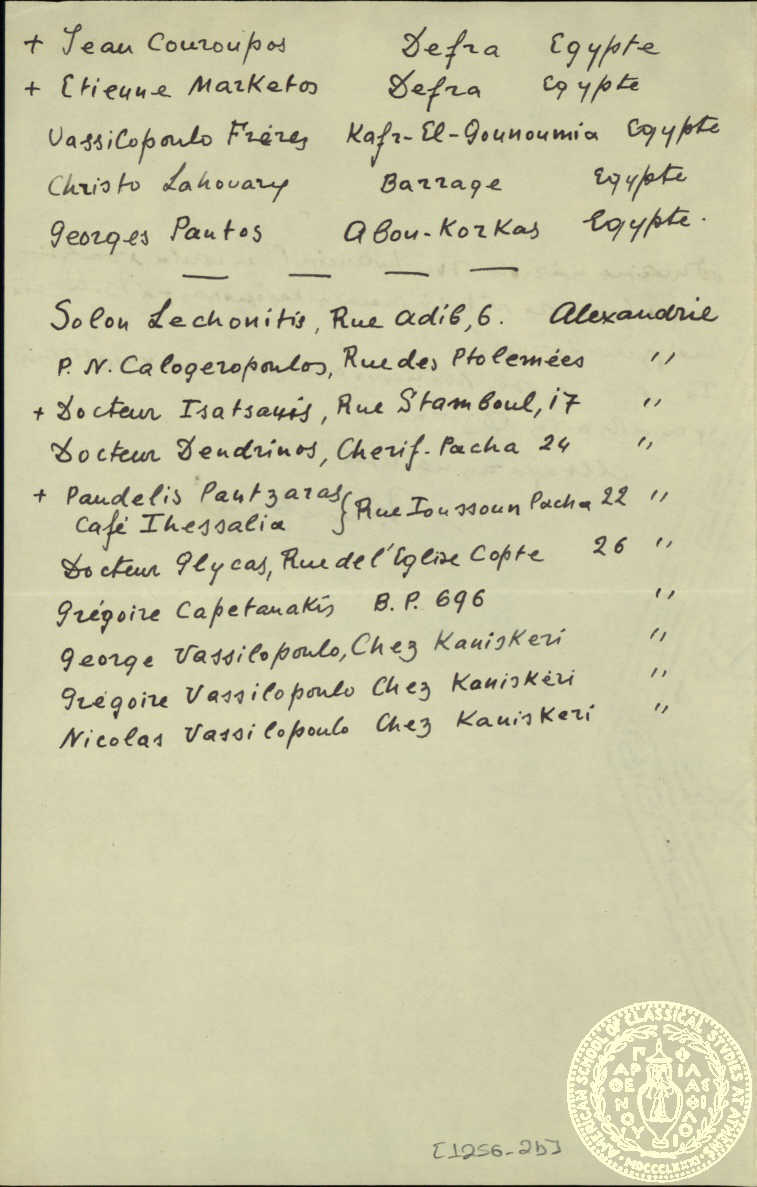 + Jean Couroupos Defra Egypte
+ Etienne Marketos Defra Egypte
Vassilopoulo Frères Kafr-El-Gounoumia Egypte
Christo Lahovary Barrage Egypte
Georges Pantos Abou-Korkas Egypte.
— — — —
Solon Lechonitis, Rue Adib, 6. Alexandrie
P. N. Calogeropoulos, Rue des Ptolemées "
+ Docteur Tsatsanis, Rue Stamboul, 17 "
Docteur Dendrinos, Cherif-Pacha 24 "
+ Pandelis Pantzaras } Rue Toussoun Pacha 22 "
Café Thessalia
Docteur Glycas, Rue de l'Eglise Copte 26 "
Grégoire Capetanakis B.P. 696 "
George Vassilopoulo, Chez Kaniskeri "
Grégoire Vassilopoulo Chez Kaniskéri "
Nicolas Vassilopoulo Chez Kaniskeri "
[1256-2b]
AMERICAN SCHOOL OF CLASSICAL STUDIES AT ATHENS
ΠΑΡΘΕΝΟΥ ΦΙΛΑΣ ΦΙΛΟΙ
· MDCCCLXXXI ·